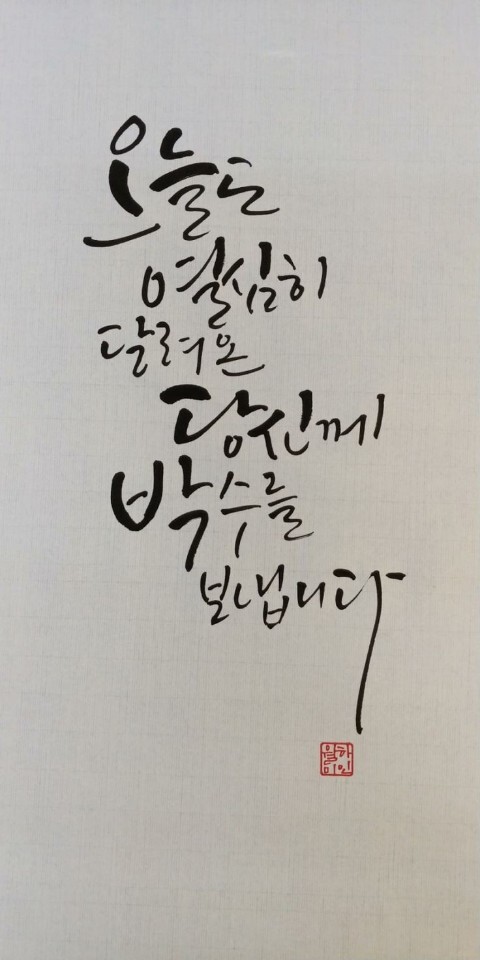 오늘도
열심히
달려온
당신께
박수를
보냅니다
월하
미인